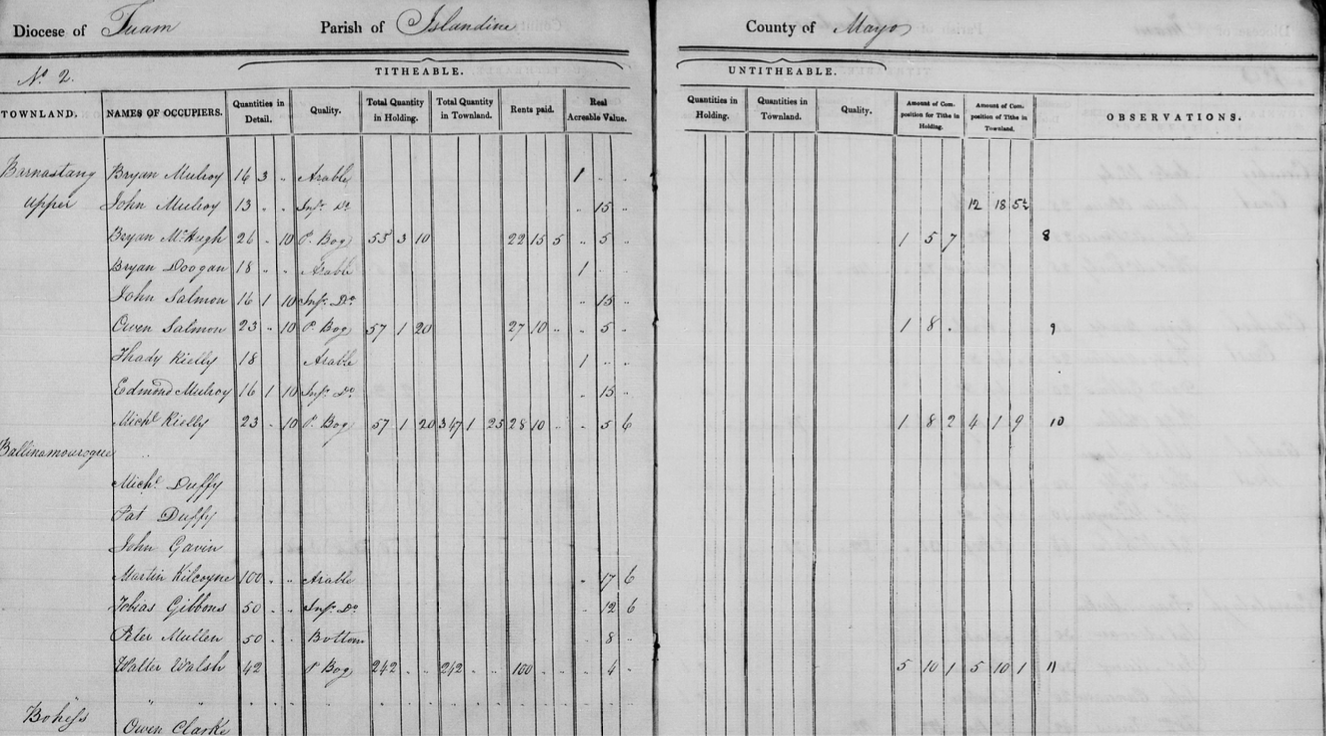 Diocese of Tuam Parish of Islandine County of Mayo
No. 2. TITHEABLE. UNTITHEABLE.
TOWNLAND. NAMES OF OCCUPIERS. Quantities in Detail. Quality. Total Quantity in Holding. Total Quantity in Townland. Rents paid. Real Acreable Value. Quantities in Holding. Quantities in Townland. Quality. Amount of Composition for Tithe in Holding. Amount of Composition of Tithe in Townland. OBSERVATIONS.
Barnastang Bryan Mulroy 14 3 .. Arable 1 .. ..
Upper John Mulroy 13 .. .. Infr. Do. .. 15 .. 12 18 5½
Bryan McHugh 26 .. 10 P. Bog 55 3 10 22 15 5 .. 5 .. 1 5 7 8
Bryan Doogan 18 .. .. Arable 1 .. ..
John Salmon 16 1 10 Infr. Do. .. 15 ..
Owen Salmon 23 .. 10 P. Bog 57 1 20 27 10 .. .. 5 .. 1 8 . 9
Thady Kielly 18 Arable 1 .. ..
Edmond Mulroy 16 1 10 Infr. Do. .. 15 ..
Michl. Kielly 23 .. 10 P. Bog 57 1 20 347 1 25 28 10 .. .. 5 6 1 8 2 4 1 9 10
Ballinamourogue ..
Michl. Duffy
Pat Duffy
John Gavin
Martin Kilcoyne 100 .. .. Arable .. 17 6
Tobias Gibbons 50 .. .. Infr. Do. .. 12 6
Peter Mullen 50 .. .. Bottom .. 8 ..
Walter Walsh 42 P. Bog 242 .. .. 242 .. .. 100 .. .. .. 4 .. 5 10 1 5 10 1 11
Bohess ..
Owen Clarke